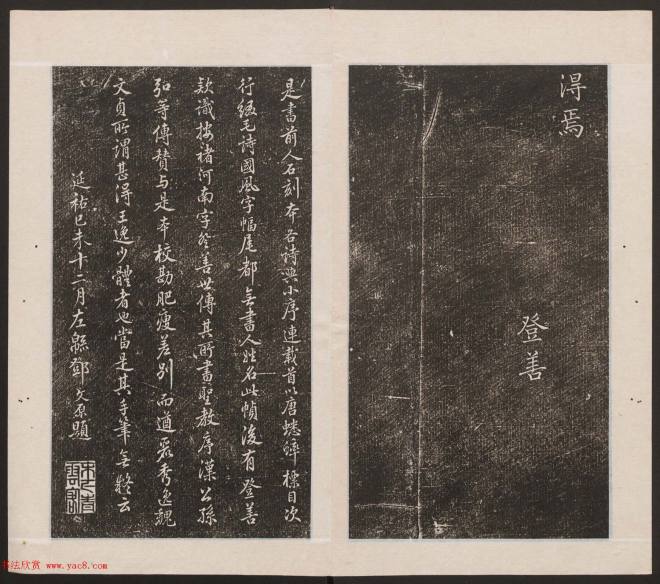 得焉
登善
是書前人石刻本各詩與小序連載首以唐蟋蟀標目次
行綴毛詩國風字幅尾都無書人姓名此幀後有登善
款識按褚河南字登善世傳其所書聖教序漢公孫
弘等傳贊与是本校勘肥瘦差別而遒嚴秀逸魏
文貞所謂甚得王逸少體者也當是其手筆無疑云
延祐己未十二月左緜鄧文原題
书法欣赏 www.yac8.com